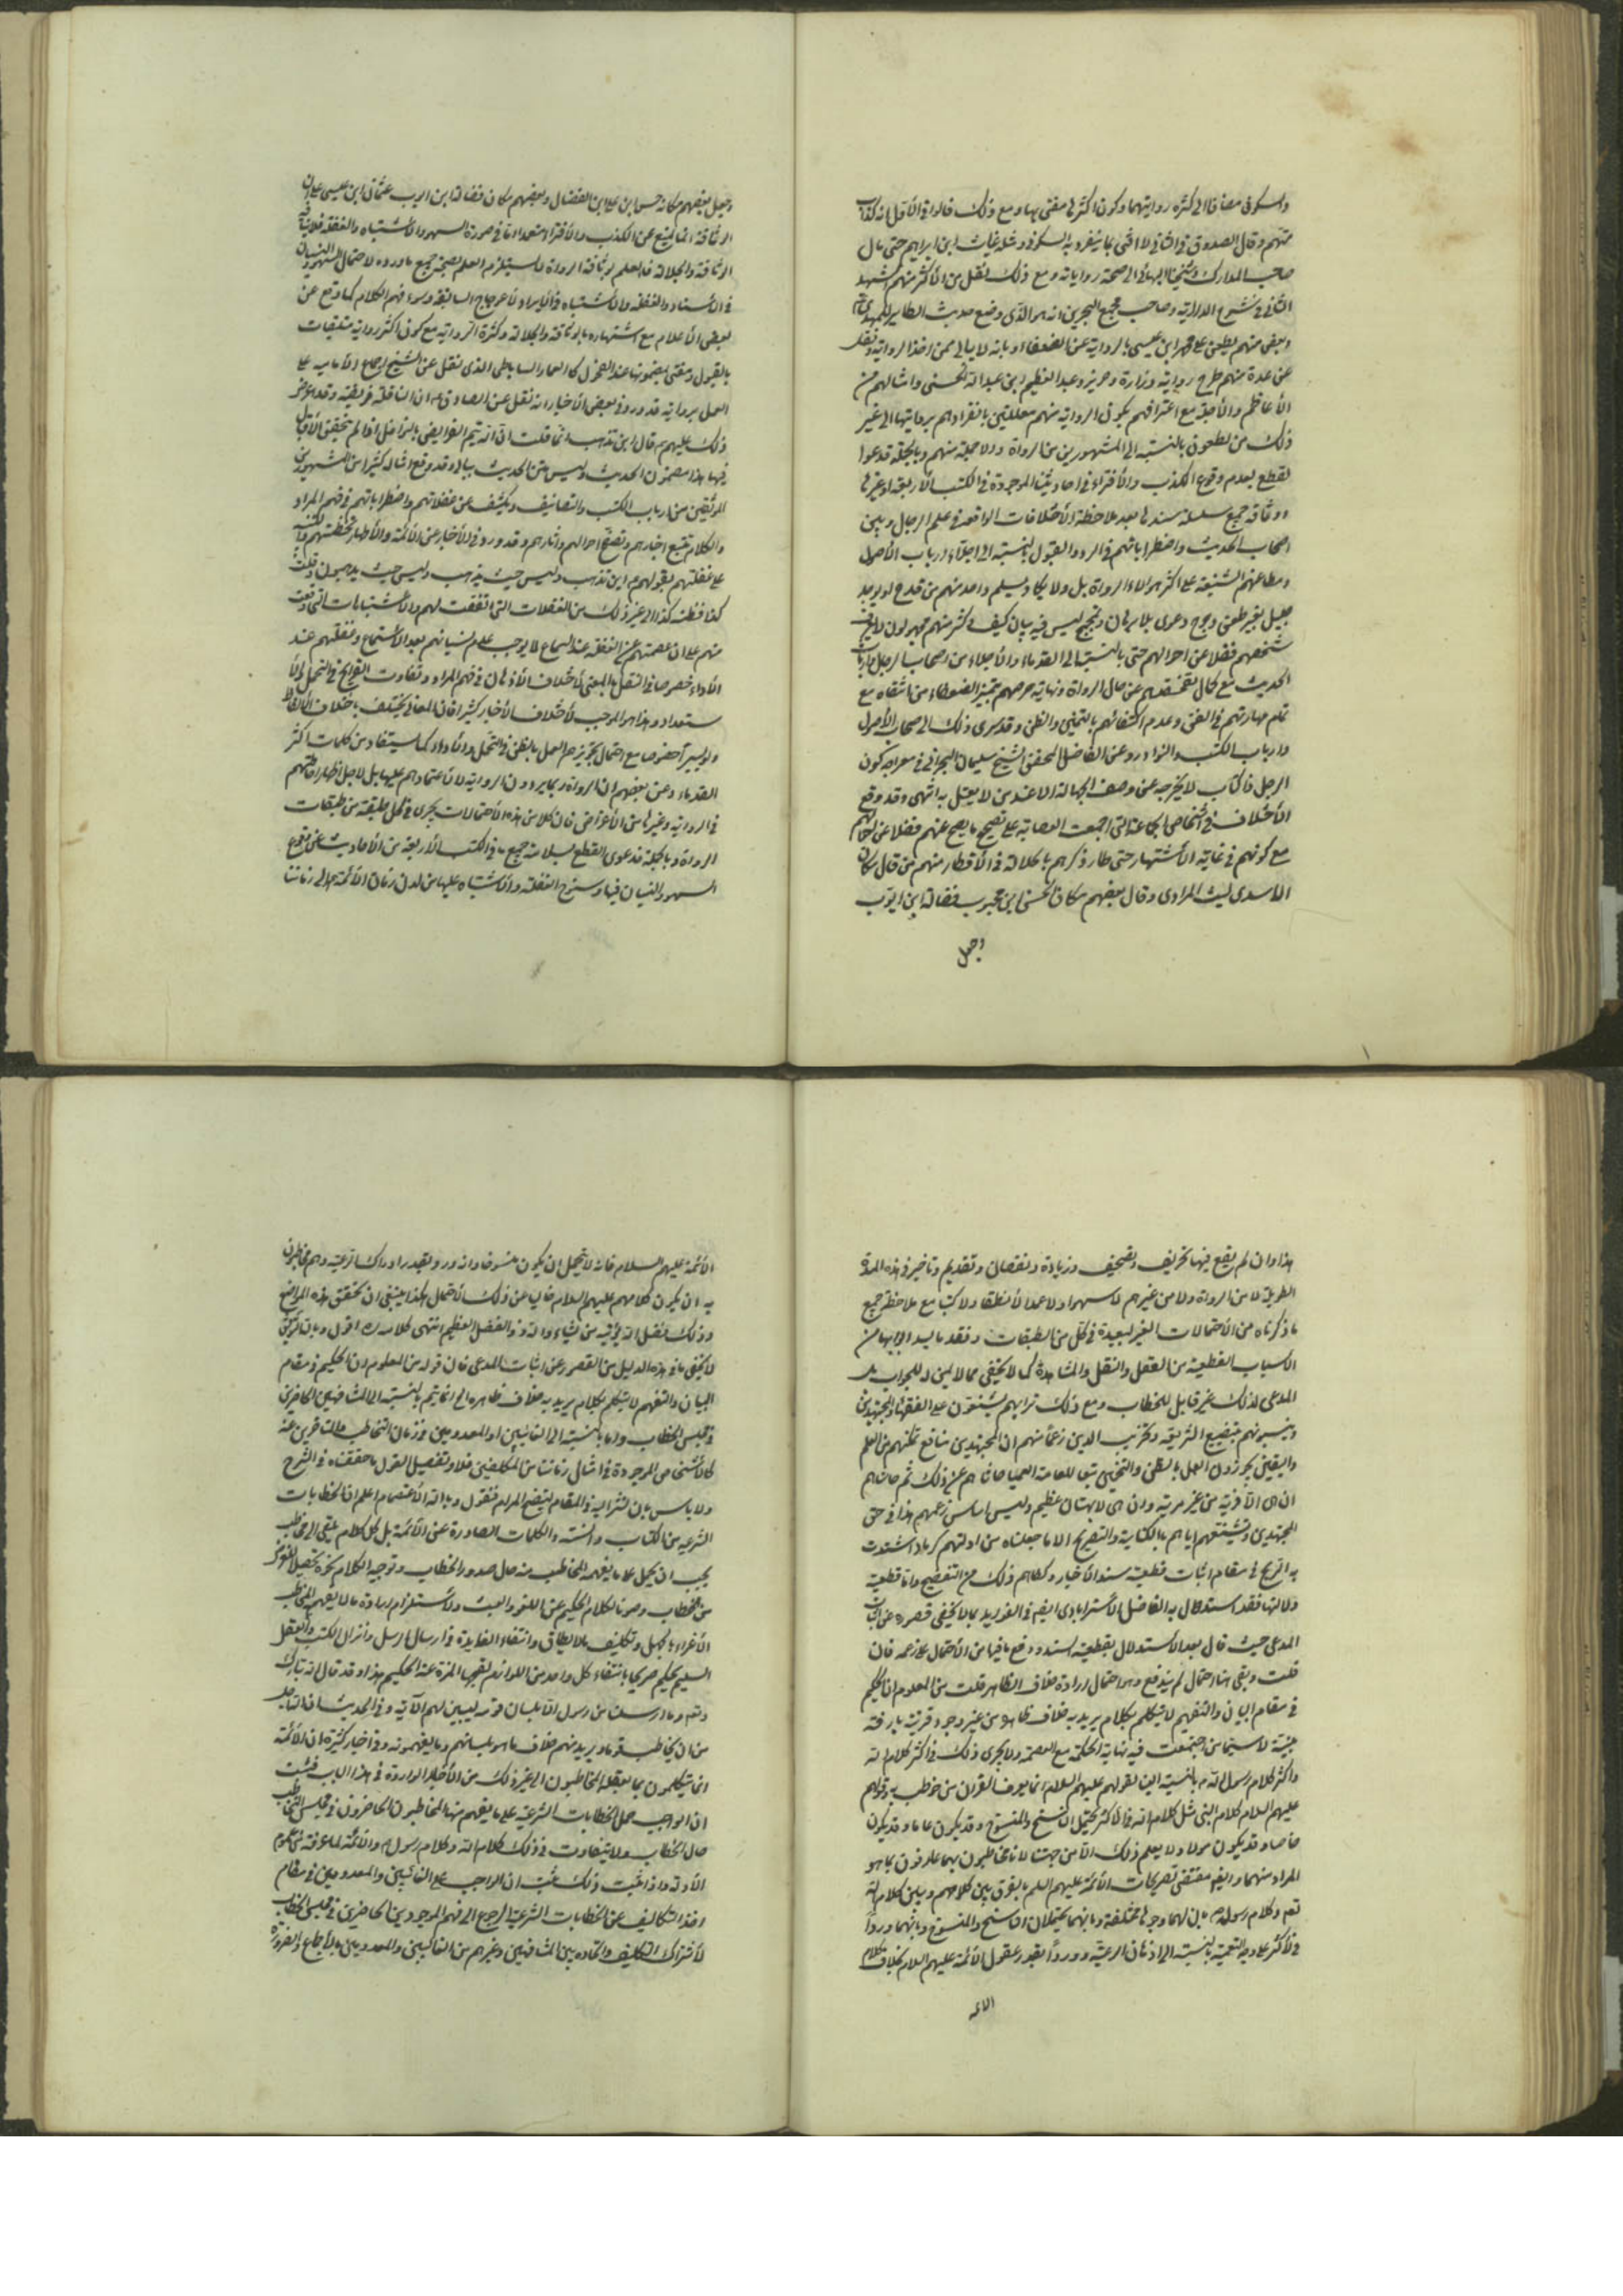 والسكوني مضافا الى كثرة روايتهما وكون اكثرها مفتى بها ومع ذلك قالوا في الأول انه كذاب
متهم وقال الصدوق في الثاني لا افتى بما ينفرد به السكوني ومثله غياث ابن ابراهيم حتى مال
صاحب المدارك وشيخنا البهائي الى صحة رواياته ومع ذلك نقل من الأكثر منهم الشهيد
الثاني في شرح الدراية وصاحب مجمع البحرين انه هو الذي وضع حديث الطاير للمهدي
وبعض منهم يطعن على محمد ابن عيسى بالرواية عن الضعفاء وبانه لا يبالي ممن اخذ الرواية ونقل
عن عدة منهم طرح رواية وزرارة وحريز وعبد العظيم ابن عبد الله الحسني وامثالهم من
الأعاظم والأجلة مع اعترافهم بكون الرواية منهم معللين بانفرادهم بروايتها الى غير
ذلك من الطعون بالنسبة الى المشهورين من الرواة والاجلة منهم وبالجملة فدعوى
القطع بعدم وقوع الكذب والأفتراء في احاديثنا الموجودة في الكتب الأربعة او غيرها
ووثاقة جميع سلسلة سندها بعد ملاحظة الأختلافات الواقعة في علم الرجال وبين
اصحاب الحديث واضطراباتهم في الرد والقبول بالنسبة الى اجلاء ارباب الأصول
ومطاعنهم الشنيعة على اكثر هولاء الرواة بل ولا يكاد يسلم واحد منهم من قدح او يوجد
جليل بغير طعن وجرح دعوى بلا برهان وتحجج ليس فيه بيان كيف واكثر منهم مجهولون لا يعرف
شخصهم فضلا عن احوالهم حتى بالنسبة الى القدماء والأجلاء من اصحاب الرجال وارباب
الحديث مع كمال تفحصهم عن حال الرواة ونهاية حرصهم بتميز الضعفاء من الثقات مع
تمام مهارتهم في الفن وعدم اكتفائهم بالتخمين والظن وقد سرى ذلك الى اصحاب الأصول
وارباب الكتب والنوادر وعن الفاضل المحقق الشيخ سليمان البحراني في معراجه كون
الرجل ذا كتاب لا يخرجه عن وصف الجهالة الا عند من لا يعتد به انتهى وقد وقع
الأختلاف في اشخاص الجماعة التي اجمعت العصابة على تصحيح ما يصح عنهم فضلا عن احوالهم
مع كونهم في غاية الأشتهار حتى طار ذكرهم بالجلالة في الأقطار منهم من قال مكان
الأسدي ليث المرادي وقال بعضهم مكان الحسن ابن محبوب فضالة ابن ايوب
وجعل
وجعل بعضهم مكانه حسن ابن علي ابن الفضال وبعضهم مكان فضالة ابن ايوب عثمان ابن عيسى على ان
الوثاقة انما تمنع عن الكذب والأفتراء متعمدا لا في صورة السهو والأشتباه والغفلة فلا ينافيه
الوثاقة والجلالة فالعلم بوثاقة الرواة لا يستلزم العلم بصحة جميع ما رووه لاحتمال السهو والنسيان
في الأسناد والغفلة والأشتباه في الأيراد والأعوجاج السابقة وسوء فهم الكلام كما وقع عن
بعض الأعلام مع اشتهاره بالوثاقة والجلالة وكثرة الرواية مع كون اكثر رواية متلقيات
بالقبول ومفتى بمضمونها عند الفحول كالعمار الساباطي الذي نقل عن الشيخ اجماع الأمامية على
العمل برواية قد ورد في بعض الأخبار انه نقل عن الصادق ع ان النافلة فريضة وقد عرض
ذلك عليهم ع قال اين تذهب انما قلت ان الله تيمم الفرايض بالنوافل اذا لم تحقق الأقبال
فيها هذا مضمون الحديث وليس متن الحديث ببالي وقد وقع امثاله كثيرا من المشهورين
الموثقين من ارباب الكتب والتصانيف ويكشف عن غفلاتهم واضطراباتهم في فهم المراد
والكلام تتبع اخبارهم وتصفح احوالهم واثارهم وقد ورد في الأخبار عن الأئمة والأطهار
على غفلتهم بقولهم ع اين تذهب وليس حيث يذهب وليس حيث يذهبون وقلت
كذا فظننت كذا الى غير ذلك من الغفلات التي اتفقت لهم والأشتباهات التي وقعت
منهم على ان عصمتهم عن الغفلة عند السماع لا يوجب علم نسيانهم بعد الأستماع وغفلتهم عند
الأداء خصوصا في النقل بالمعنى لأختلاف الأذهان في فهم المراد وتفاوت القرايح في التحمل
ستعداد وهذا هو الموجب لأختلاف الأخبار كثيرا فان المعاني يختلف باختلاف الألفاظ
ولو يسيرا خصوصا مع احتمال تجويزهم العمل بالظن في التحمل والأداء كما يستفاد من كلمات اكثر
القدماء وعن بعضهم ان الرواة ربما يروون الرواية لا لأعتمادهم عليها بل لاجل اظهار
في الرواية وغيرها من الأغراض فان كلا من هذه الأحتمالات يجرى في كل طبقة من طبقات
الرواة وبالجملة فدعوى القطع بسلامة جميع ما في الكتب الأربعة من الأحاديث عن وقوع
السهو والنسيان فيها وسنوح الغفلة والأشتباه عليها من لدن زمان الأئمة ع الى زماننا
هذا وان لم يقع فيها تحريف وتصحيف وزيادة ونقصان وتقديم وتاخير في هذه المدة
الطويلة لا من الرواة ولا من غيرهم لا سهوا ولا عمدا لا نطقا ولا كتبا مع ملاحظة جميع
ما ذكرناه من الأحتمالات الغير البعيدة في كل من الطبقات وفقد ما يسد ابوابها من
الأسباب القطعية من العقل والنقل والمشاهدة كما لا يخفى مما لا يليق له الجواب بل
المدعى لذلك غير قابل للخطاب ومع ذلك تراهم يشنعون على الفقهاء والمجتهدين
وينسبونهم بتضييع الشريعة وتخريب الدين زعما منهم ان المجتهدين مع تمكنهم من العلم
واليقين يجوزون العمل بالظن والتخمين تبعا للعامة العمياء حاشاهم عن ذلك ثم حاشاهم
ان هي الا فرية من غير مرية وان هي الا بهتان عظيم وليس اساس زعمهم هذا في حق
المجتهدين وتشنيعهم اياهم بالكناية والتصريح الا ما جعلناه من ادلتهم كرماد اشتدت
به الريح في مقام اثبات قطعية سند الأخبار وكفاهم ذلك من التفضيح واما قطعية
دلالتها فقد استدل به الفاضل الأسترابادي ايضم في الفوايد بما لا يخفى قصوره عن اثبات
المدعى حيث قال بعد الاستدلال بقطعية السند ودفع ما فيها من الأحتمال على زعمه فان
قلت وبقى هنا احتمال لم يندفع وهو احتمال ارادة خلاف الظاهر قلت من المعلوم ان الحكيم
في مقام البيان والتفهيم لا يتكلم بكلام يريد به خلاف ظاهره من غير وجود قرينة صارفة
بينة لا سيما من اجتمعت فيه نهاية الحكمة مع العصمة ولا يجرى ذلك في اكثر كلام الله
واكثر كلام رسول الله ص بالنسبة الينا لقولهم عليهم السلام انما يعرف القران من خوطب به وقولهم
عليهم السلام كلام النبي مثل كلام الله في الاكثر يحتمل الناسخ والمنسوخ وقد يكون عاما وقد يكون
خاصا وقد يكون مؤولا ولا يعلم ذلك الا من جهتنا لأنا مخاطبون بهما عارفون بما هو
المراد منهما وايضم مقتضى تصريحات الأئمة عليهم السلم بالفرق بين كلامهم وبين كلام الله
تعم وكلام رسوله ص بان لهما وجوها مختلفة وبانهما يحتملان الناسخ والمنسوخ وبانهما وردا
في الأكثر على وجه التعمية بالنسبة الى اذهان الرعية ووردا بقدر عقول الأئمة عليهم السلام بخلاف كلام
الأئمة
الأئمة عليهم السلام فانه لا يحتمل ان يكون منسوخا وانه ورد بقدر ادراك الرعية وهم مخاطبون
به ان يكون كلامهم عليهم السلام خاليا عن ذلك الأحتمال هكذا ينبغي ان تحقق هذه المواضع
وذلك فضل الله يؤتيه من يشاء والله ذو الفضل العظيم انتهى كلامه اقول وبالله التوفيق
لا يخفى ما في هذه الدليل من القصور عن اثبات المدعى فان قوله من المعلوم ان الحكيم في مقام
البيان والتفهيم لا يتكلم بكلام يريد به خلاف ظاهره الخ انما يتم بالنسبة الى المشافهين الحاضرين
في مجلس الخطاب واما بالنسبة الى الغائبين او المعدومين في زمان التخاطب والمتاخرين عنه
كالأشخاص الموجودة في امثال زماننا من المكلفين فلا وتفصيل القول ما حققناه في الشرح
ولا باس بان نشر اليه في المقام ليتضح المرام فنقول وبالله الأعتصام اعلم ان الخطابات
الشرعية من الكتاب والسنة والكلمات الصادرة عن الأئمة بل كل كلام يلقى الى مخاطب
يجب ان يحمل على ما يفهمه المخاطب منه حال صدور الخطاب وتوجيه الكلام نحوه تحصيلا للغرض
من الخطاب وصونا لكلام الحكيم عن اللغو والعبث ولأستلزام ارادة ما لا يفهمه المخاطب
الأغراء بالجهل وتكليف ما لا يطاق وانتفاء الفايدة في ارسال الرسل وانزال الكتب والعقل
السليم يحكم صريحا بانتفاء كل واحد من اللوازم لقبحها المنزه عنه الحكيم هذا وقد قال الله تبارك
وتعم وما ارسلنا من رسول الا بلسان قومه ليبين لهم الآية وفي الحديث ان الله اجل
من ان يخاطب قوما ويريد منهم خلاف ما هو بلسانهم وما يفهمونه وفي اخبار كثيرة ان الأئمة
انما يتكلمون بما يعقله المخاطبون الى غير ذلك من الأخبار الواردة في هذا الباب فثبت
ان الواجب حمل الخطابات الشرعية على ما يفهم منها المخاطبون الحاضرون في مجلس التخاطب
حال الخطاب ولا يتفاوت في ذلك كلام الله وكلام رسوله ص والأئمة لما عرفت من عموم
الأدلة واذا ثبت ذلك ثبت ان الواجب على الغائبين والمعدومين في مقام
اخذ التكاليف عن الخطابات الشرعية الرجوع الى فهم الموجودين الحاضرين في مجلس الخطاب
لأشتراك التكليف واتحاده بين المشافهين وغيرهم من الغائبين والمعدومين بالأجماع والضرورة